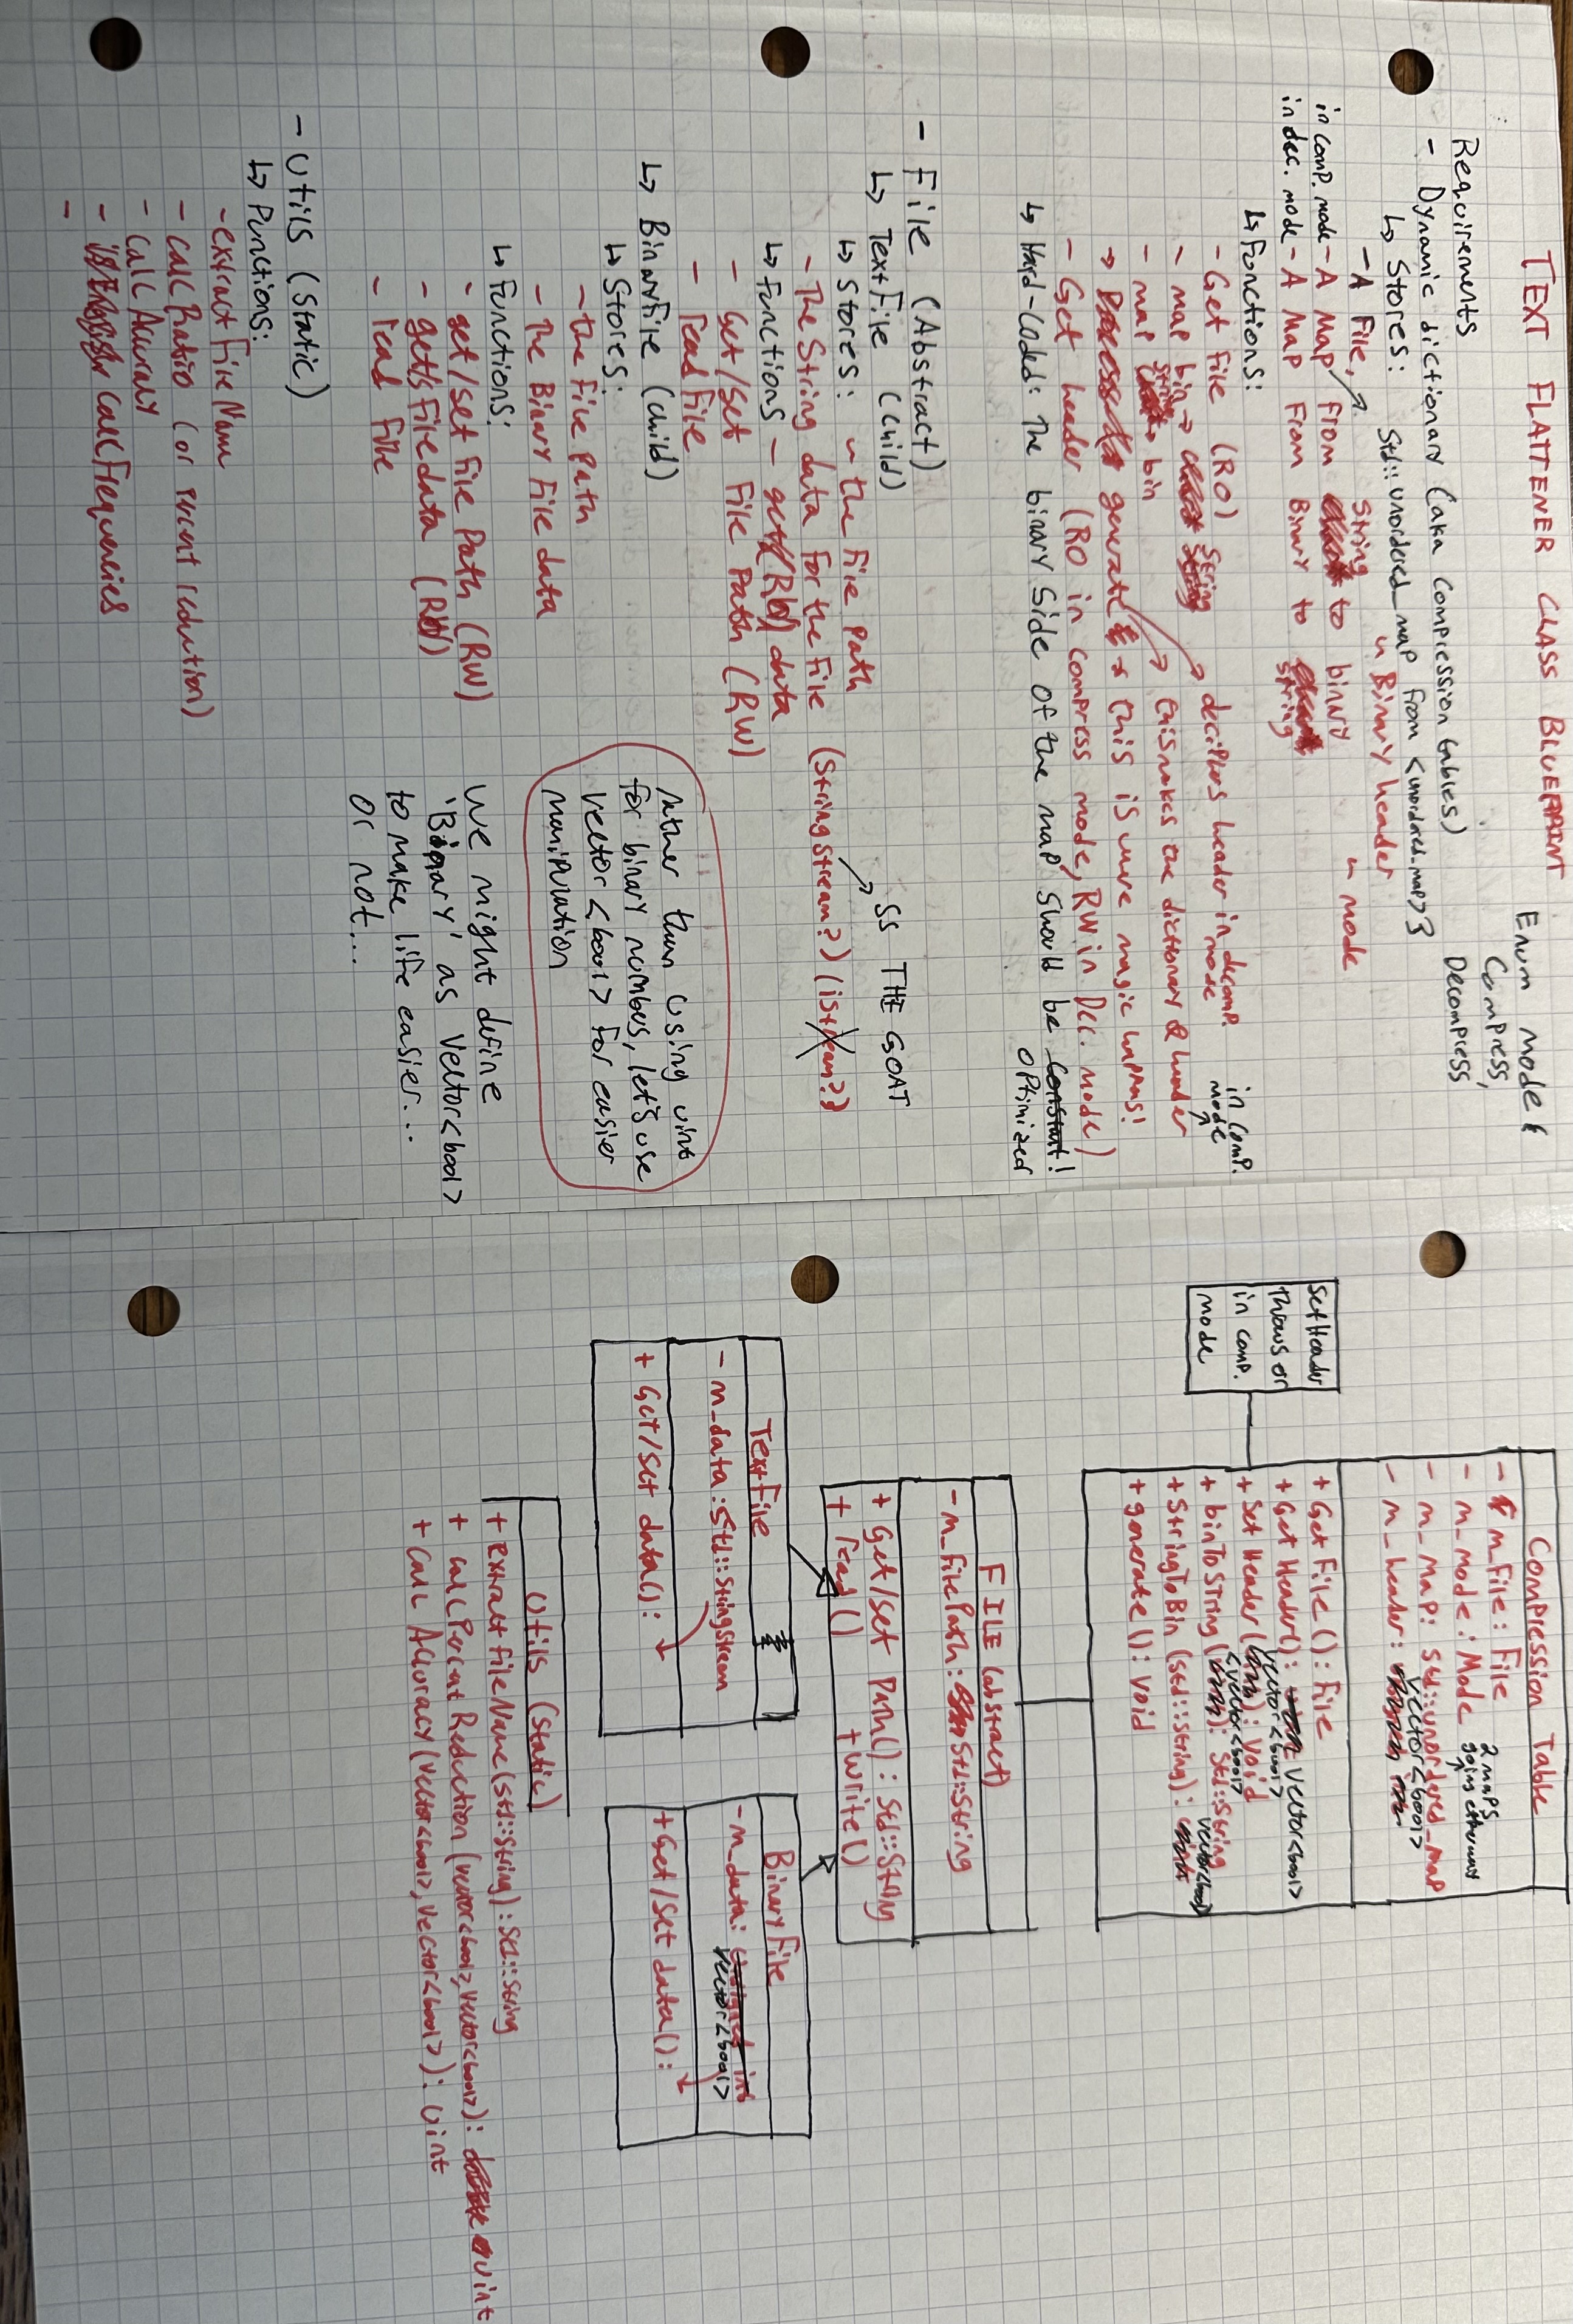 TEXT FLATTENER CLASS BLUEPRINT
Enum mode {
Compress,
Decompress
Requirements
- Dynamic dictionary (aka compression tables)
↳ Stores:
std::unordered_map from <unordered_map>}
- A File,
- Binary header
- mode
String
in comp. mode - A map from to binary
in dec. mode - A map from Binary to
string
↳ Functions:
- Get File (RO)
String
- map bin →
String
- map → bin
→ generate → this is where magic happens!
deciphers header in decomp. mode
this makes the dictionary & header
in comp. mode
- Get header (RO in compress mode, RW in Dec. mode)
↳ Hard-coded: The binary side of the map should be constant!
optimized
- File (Abstract)
↳ TextFile (child)
↳ stores: - the file path
- The string data for the file (stringstream?) (istream?)
SS THE GOAT
↳ functions - get/s (RW) data
- Get/set file path (RW)
- read file
↳ BinaryFile (child)
↳ Stores:
- the file path
- The Binary file data
↳ Functions:
- get/set file path (RW)
- get/s file data (RW)
- read file
rather than using uint
for binary numbers, let's use
vector <bool> for easier
manipulation
We might define
'Binary' as vector<bool>
to make life easier...
or not...
- Utils (static)
↳ Functions:
- extractFileName
- calcRatio (or percent reduction)
- calcAccuracy
- calcFrequencies
-
Compression Table
- m_File: File
- m_mode: Mode
2 maps
going either way
- m_map: std::unordered_map
vector<bool>
- m_header:
+ Get File(): File
+ Get Header(): vector<bool>
vector<bool>
+ Set Header( ): void
<vector<bool>
+ binToString( ): std::string
vector<bool>
+ StringToBin (std::string):
+ generate(): void
SetHeader
throws or
in comp.
mode
FILE (abstract)
- m_filePath: std::string
+ Get/set path(): std::string
+ read() + write()
TextFile
- m_data: std::stringstream
+ Get/Set data():
BinaryFile
- m_data: unsigned int
vector<bool>
+ Get/Set data():
Utils (static)
+ extractFileName(std::string): std::string
+ calcPercentReduction (vector<bool>, vector<bool>): uint
+ calcAccuracy (vector<bool>, vector<bool>): uint